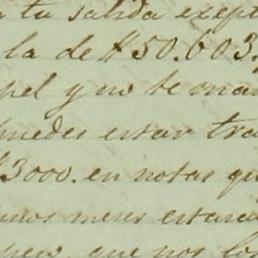 tu salida exept
la de $50.603.
pel y no te man
puedes estar tra
$3000. en notas qu
unos meses estara
que nos